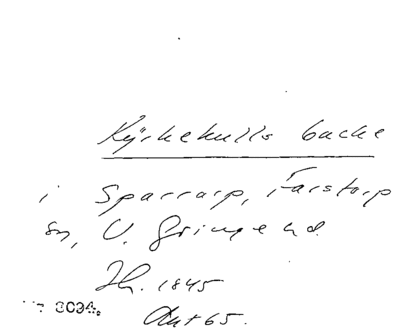 Kyrkekulls backe
i Sparrarp, Farstorp
sn, V. Göinge hd.
Ih. 1845
8094.
Avt 65.